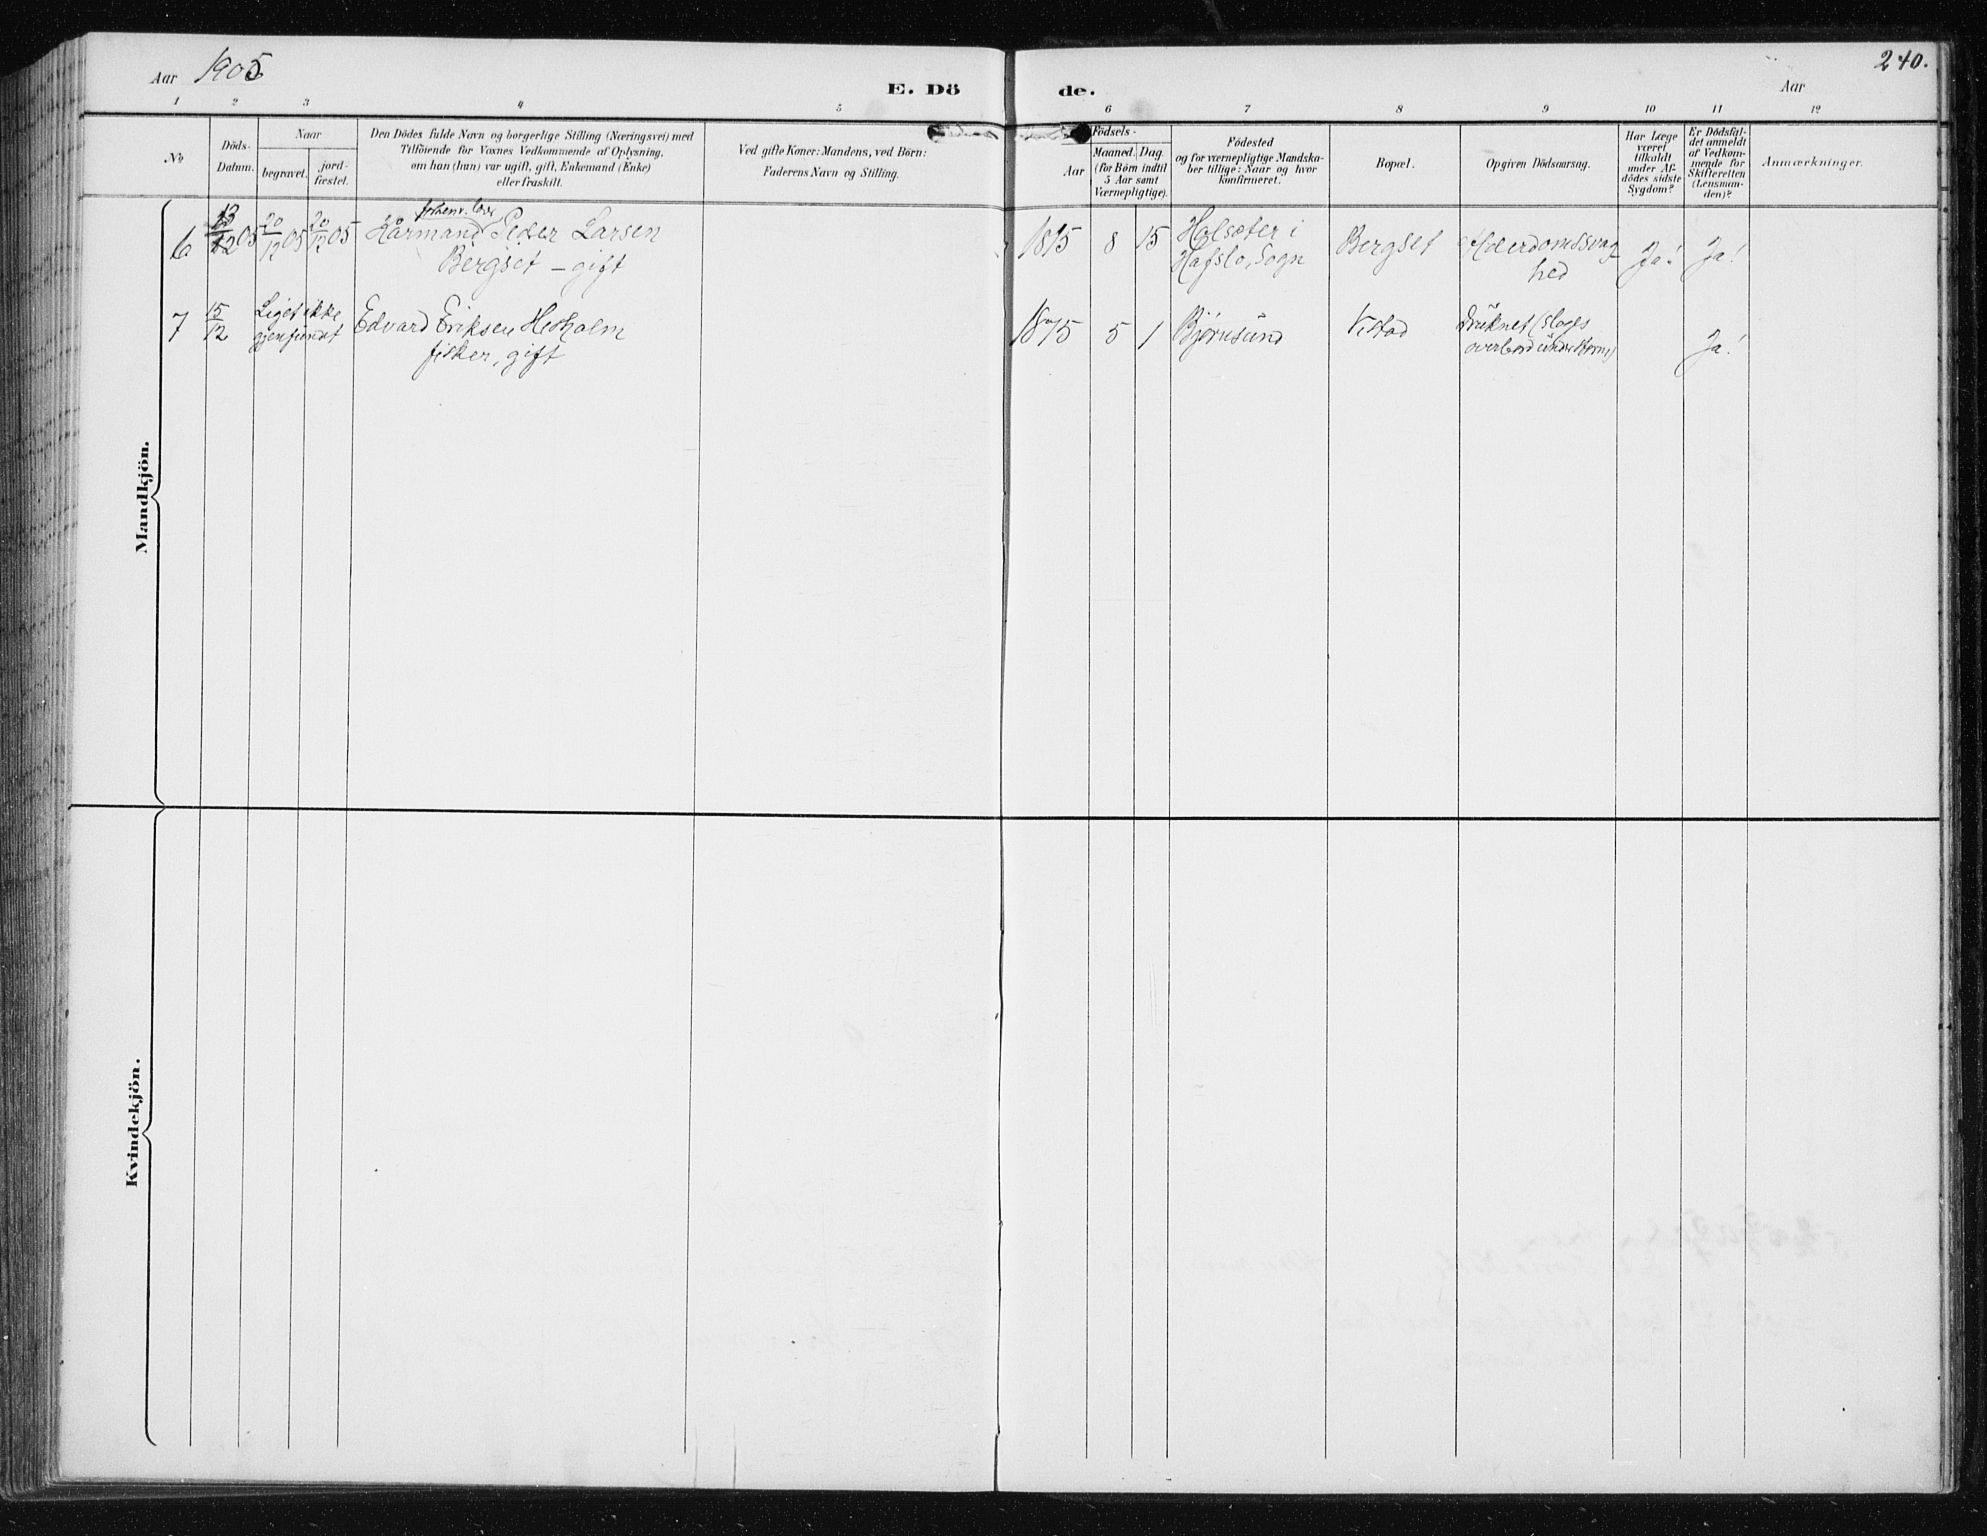 Aar 1905
E. Dö de.
Aar
240.
1 2 3 4 5 6 7 8 9 10 11 12
No
Döds-
Datum.
Naar
begravet.
jord-
fæstet.
Den Dödes fulde Navn og borgerlige Stilling (Næringsvei) med
Tilföiende for Voxnes Vedkommende af Oplysning,
om han (hun) var ugift, gift, Enkemand (Enke)
eller fraskilt.
Ved gifte Koner: Mandens, ved Börn:
Faderens Navn og Stilling.
Födsels-
Aar
Maaned.
Dag.
(for Börn indtil
5 Aar samt
Værnepligtige).
Födested
og for værnepligtige Mandska-
ber tillige: Naar og hvor
konfirmeret.
Bopæl.
Opgiven Dödsaarsag.
Har Læge
været
tilkaldt
under Af-
dödes sidste
Sygdom?
Er Dödsfal-
det anmeldt
af Vedkom-
mende for
Skifteretten
(Lensman-
den)?
Anmærkninger.
Mandkjön.
6 13/12 05 20/12 05 20/12 05 Kårmand Peder Larsen
Bergset – gift
1815 8 15 Holsæter i
Hafslo, Sogn
Bergset
Alderdomssvag-
hed
Ja! Ja!
7 15/12 Liget ikke
gjenfundet
Edvard Eriksen Hestholm
fisker, gift
1875 5 1 Bjørnsund
Druknet (sloges
overbord under storm)
Ja!
Kvindekjön.